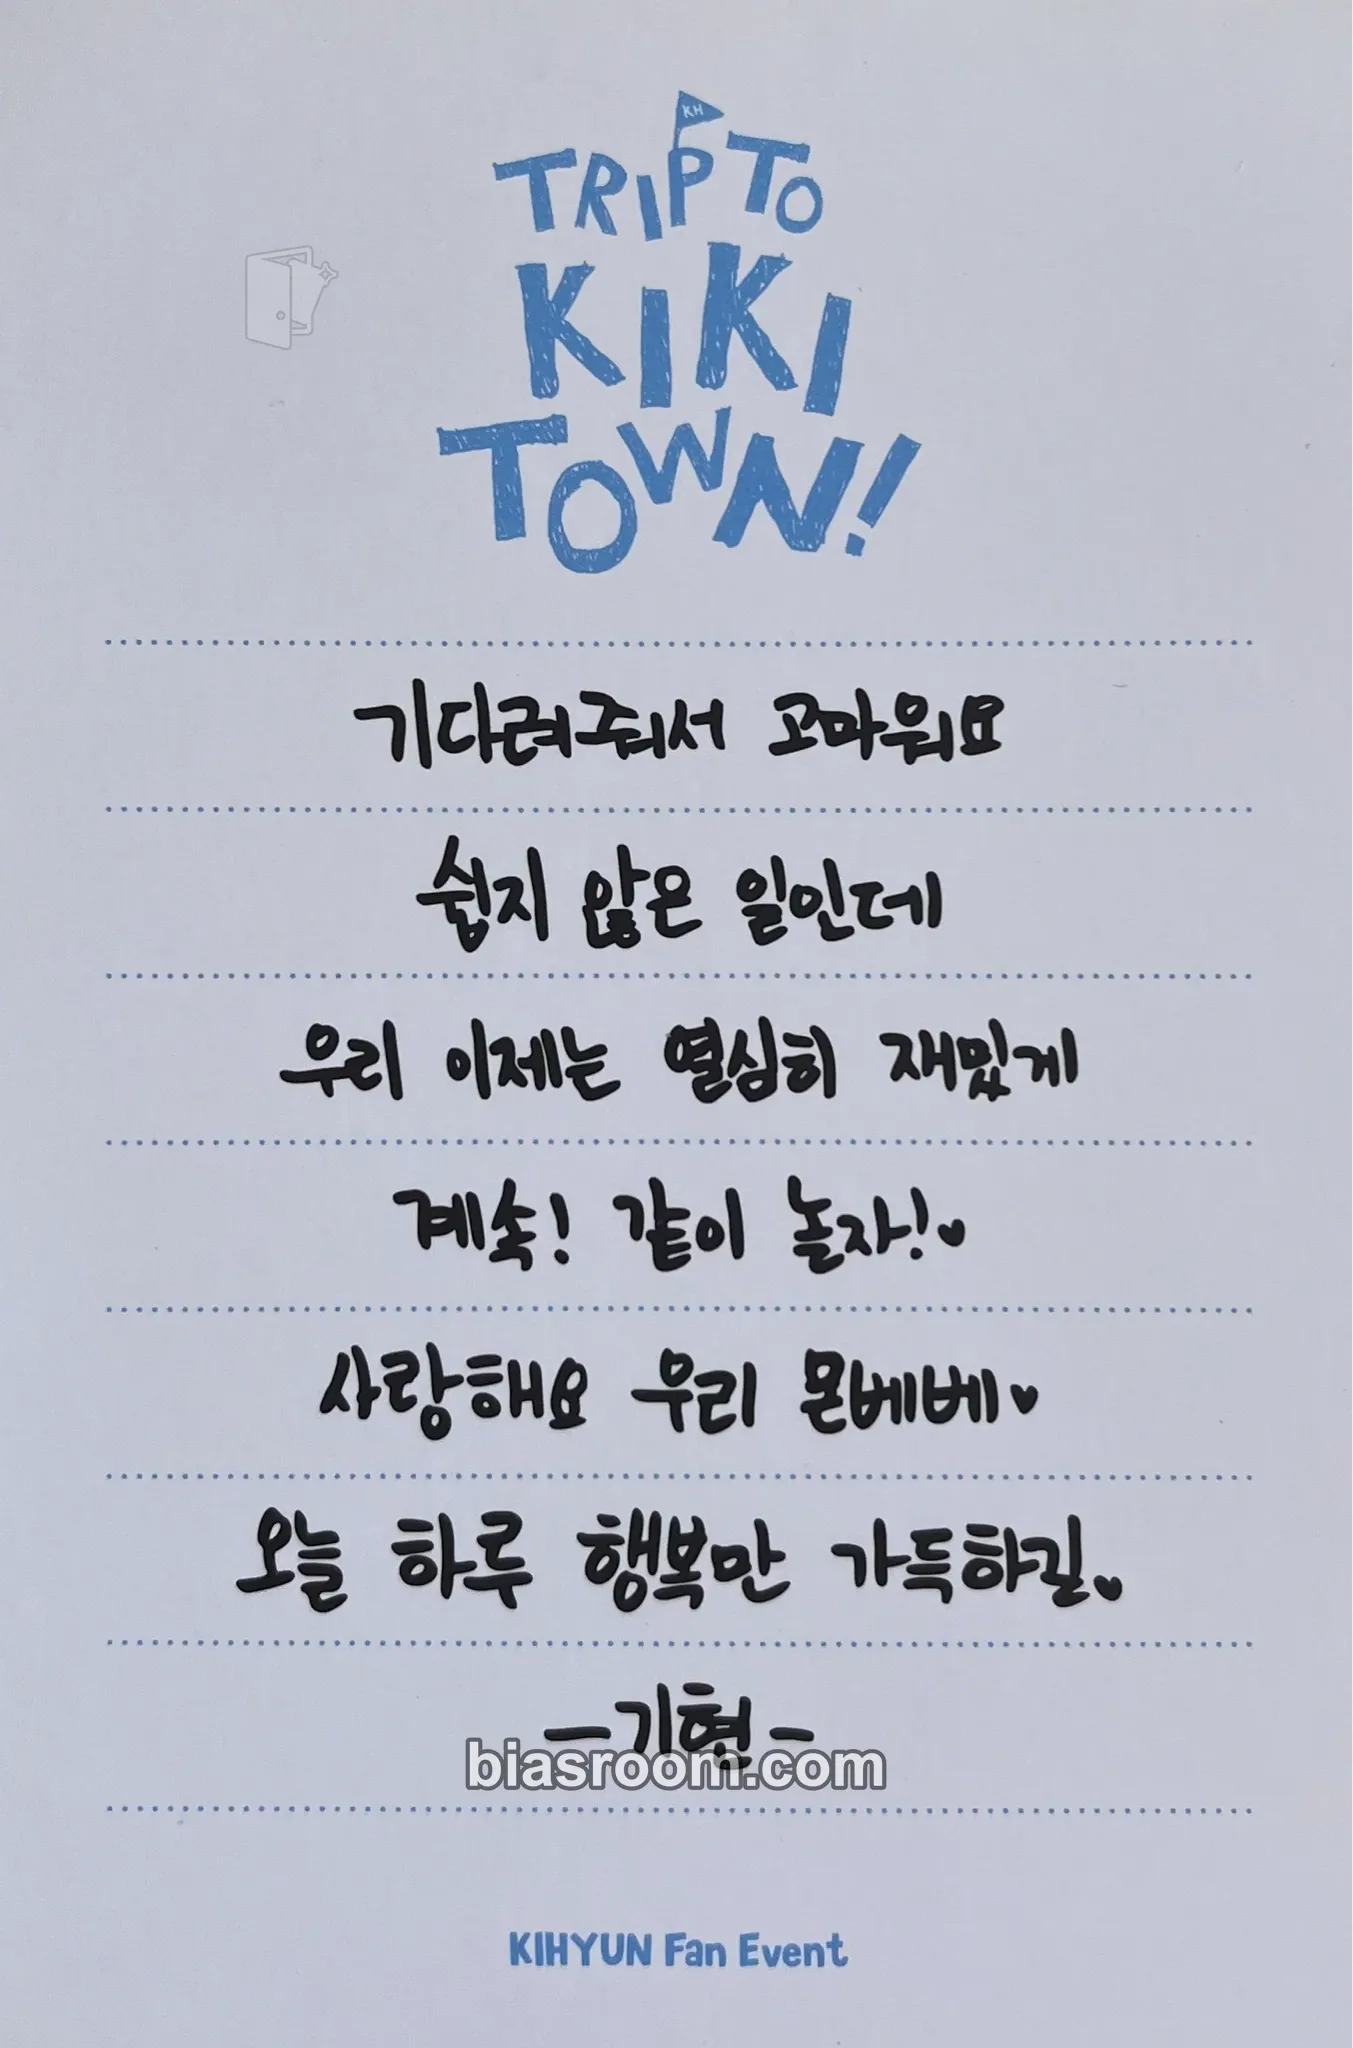 KH
TRIP TO
KIKI
TOWN!
기다려줘서 고마워요
쉽지 않은 일인데
우리 이제는 열심히 재밌게
계속! 같이 놀자!♥
사랑해요 우리 몬베베♥
오늘 하루 행복만 가득하길♥
-기현-
biasroom.com
KIHYUN Fan Event